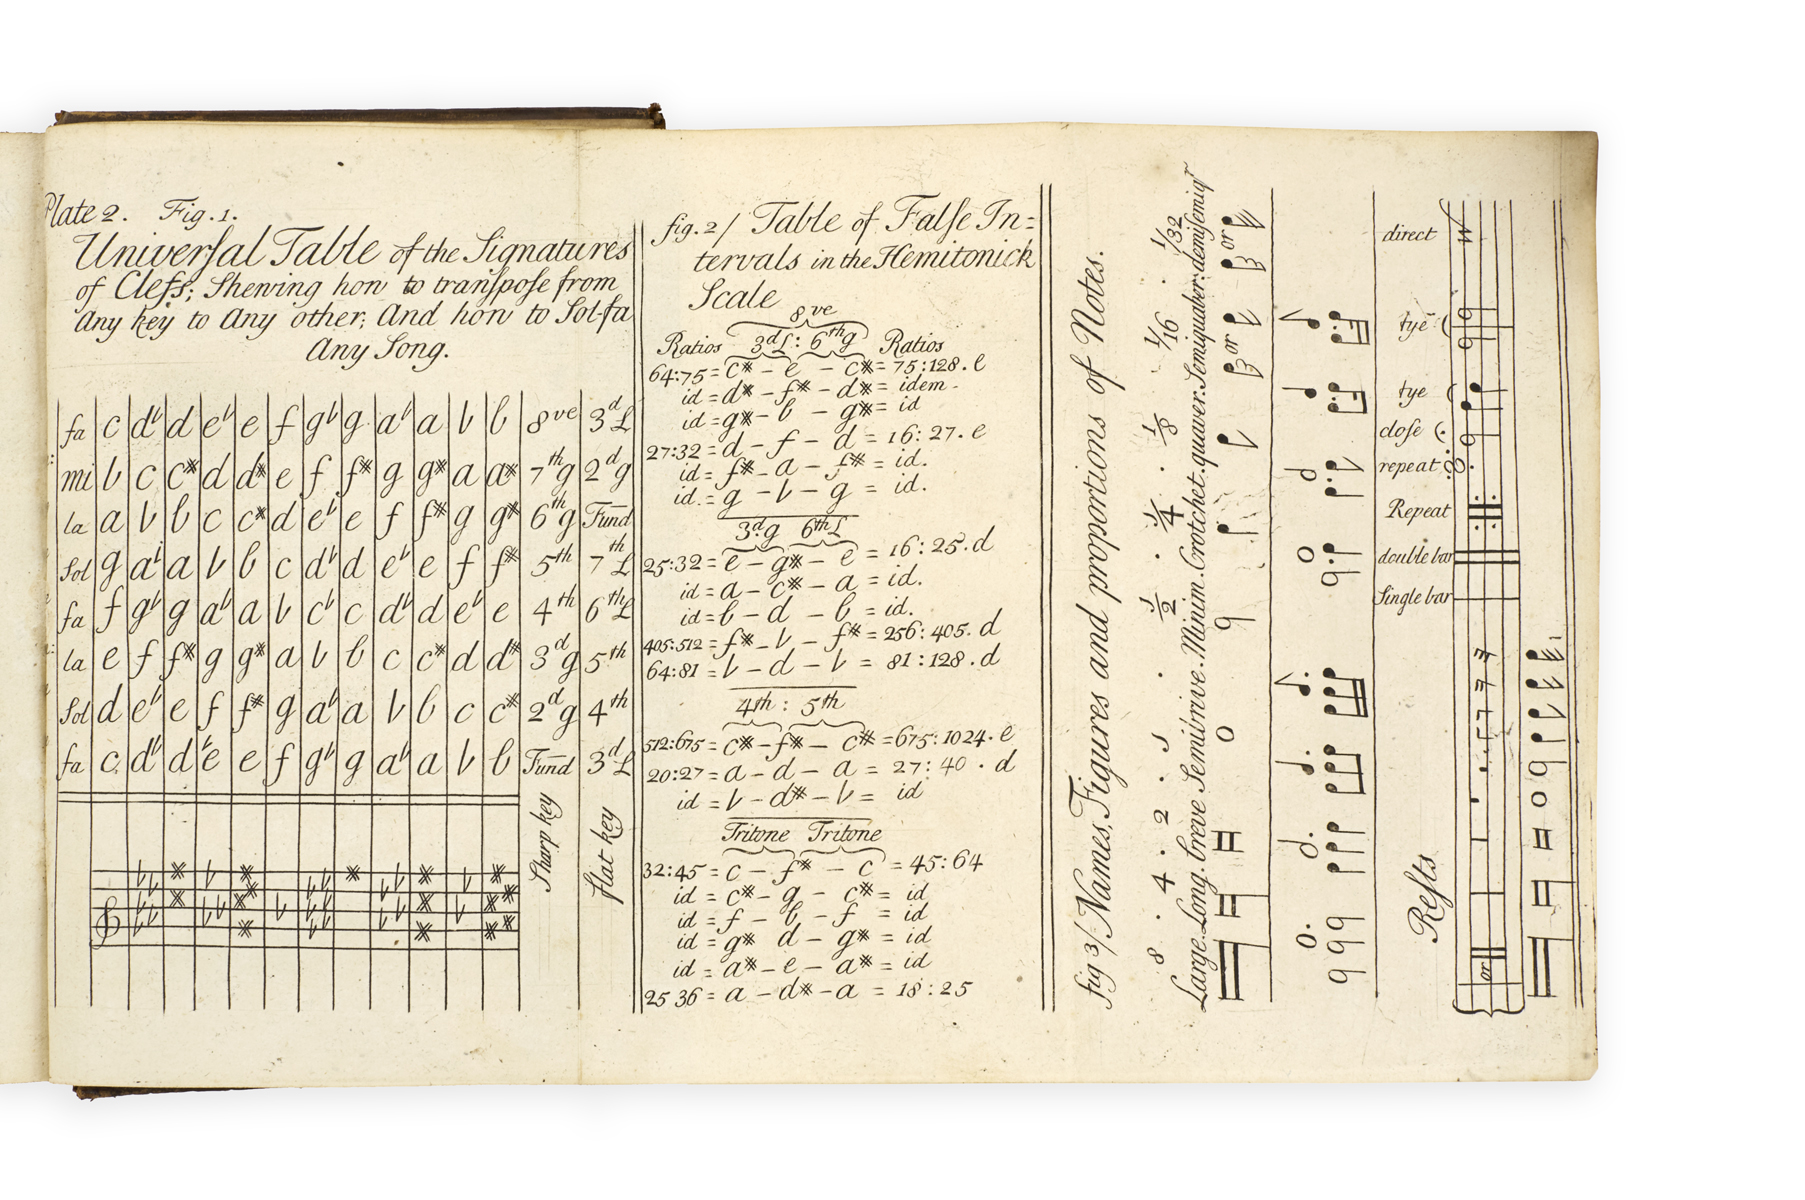 Plate 2. Fig. 1.
Univerſal Table of the Signatures
of Clefs; Shewing how to tranſpoſe from
Any key to Any other; And how to Sol-fa
Any Song.
fa c d♭ d e♭ e f g♭ g a♭ a ♭ b 8ve 3d L
mi b c c# d d# e f f# g g# a a# 7th g 2d g
la a ♭ b c c# d e♭ e f f# g g# 6th g Fund
Sol g a♭ a ♭ b c d♭ d e♭ e f f# 5th 7th L
fa f g♭ g a♭ a b c♭ c d♭ d e♭ e 4th 6th L
la e f f# g g# a ♭ b c c# d d# 3d g 5th
Sol d e♭ e f f# g a♭ a ♭ b c c# 2d g 4th
fa c d♭ d ♭e e f g♭ g a♭ a ♭ b Fund 3d L
Sharp key
flat key
fig. 2/ Table of Falſe In=
tervals in the Hemitonick
Scale
8ve
Ratios 3d L : 6th g Ratios
64:75 = c# - e - c# = 75:128. e
id = d# - f# - d# = idem -
id = g# - b - g# = id
27:32 = d - f - d = 16:27. e
id = f# - a - f# = id.
id. = g - ♭ - g = id.
3d g 6th L
25:32 = e - g# - e = 16:25. d
id = a - c# - a = id.
id = b - d - b = id.
405:512 = f# - ♭ - f# = 256:405. d
64:81 = ♭ - d - ♭ = 81:128. d
4th : 5th
512:675 = c# - f# - c# = 675:1024. e
20:27 = a - d - a = 27:40 . d
id = ♭ - d# - ♭ = id
Tritone Tritone
32:45 = c - f# - c = 45:64
id = c# - g - c# = id
id = f - b - f = id
id = g# d - g# = id
id = a# - e - a# = id
25 36 = a - d# - a = 18:25
fig 3/ Names, Figures and proportions of Notes.
8 . 4 . 2 . 1 . 1/2 . 1/4 . 1/8 . 1/16 . 1/32
Large. Long. breve Semibrive. Minim. Crotchet. quaver. Semiquaber: demiſemiqr
or or
Reſts
Single bar
double bar
Repeat
repeat
cloſe
tye
tye
direct
or